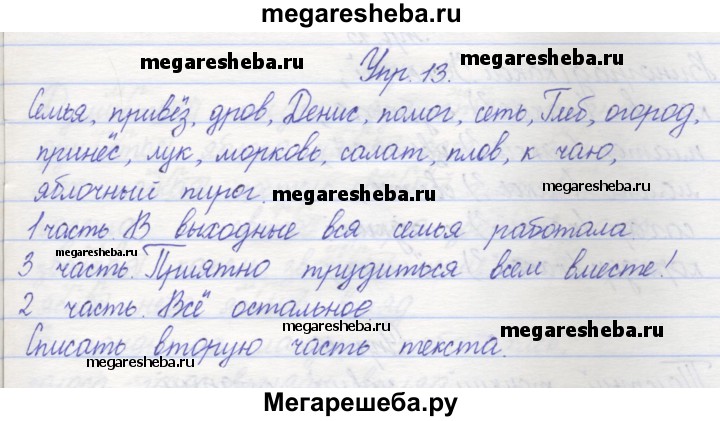 megaresheba.ru
megaresheba.ru Упр. 13. megaresheba.ru
Семья, привёз, дров, Денис, помог, сеть, Глеб, огород,
принёс, лук, морковь, салат, плов, к чаю,
яблочный пирог. megaresheba.ru megaresheba.ru
1 часть. В выходные вся семья работала.
megaresheba.ru
3 часть. Приятно трудиться всем вместе!
2 часть. Всё остальное.
megaresheba.ru megaresheba.ru
Списать вторую часть текста.
Мегарешеба.ру